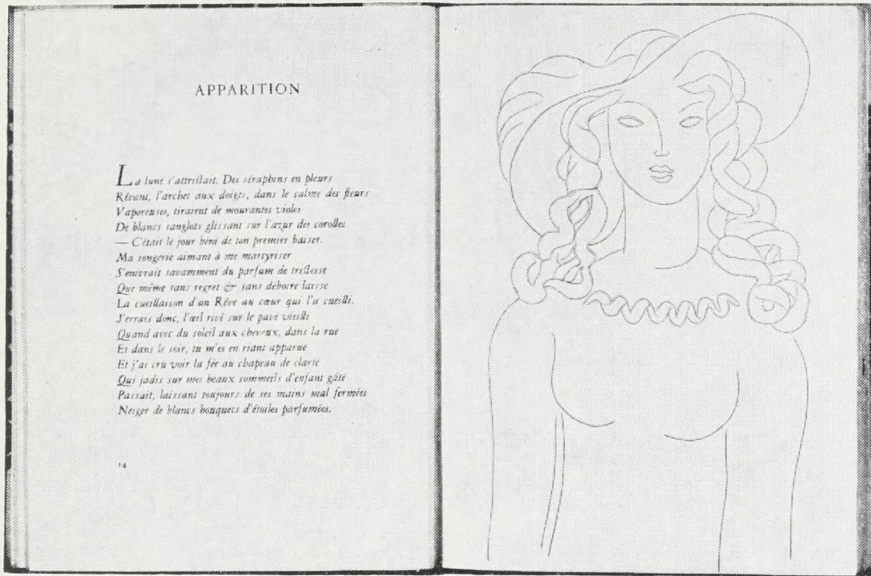 APPARITION
La lune s'attristait. Des séraphins en pleurs
Rêvant, l'archet aux doigts, dans le calme des fleurs
Vaporeuses, tiraient de mourantes violes
De blancs sanglots glissant sur l'azur des corolles
— C'était le jour béni de ton premier baiser.
Ma songerie aimant à me martyriser
S'enivrait savamment du parfum de tristesse
Que même sans regret & sans déboire laisse
La cueillaison d'un Rêve au cœur qui l'a cueilli.
J'errais donc, l'œil rivé sur le pavé vieilli
Quand avec du soleil aux cheveux, dans la rue
Et dans le soir, tu m'es en riant apparue
Et j'ai cru voir la fée au chapeau de clarté
Qui jadis sur mes beaux sommeils d'enfant gâté
Passait, laissant toujours de ses mains mal fermées
Neiger de blancs bouquets d'étoiles parfumées.
14